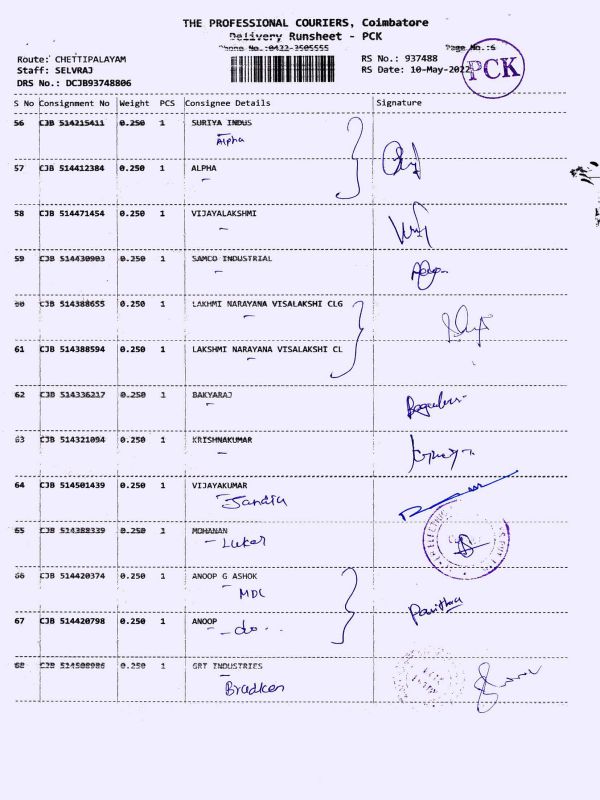 THE PROFESSIONAL COURIERS, Coimbatore
Delivery Runsheet - PCK
Phone No.:0422-3505555
Page No.:6
Route: CHETTIPALAYAM
RS No.: 937488
Staff: SELVRAJ
RS Date: 10-May-2022
DRS No.: DCJB93748806
PCK
S No Consignment No Weight PCS Consignee Details Signature
56 CJB 514215411 0.250 1 SURIYA INDUS
Alpha
57 CJB 514412384 0.250 1 ALPHA
58 CJB 514471454 0.250 1 VIJAYALAKSHMI
59 CJB 514430903 0.250 1 SAMCO INDUSTRIAL
60 CJB 514388655 0.250 1 LAKHMI NARAYANA VISALAKSHI CLG
61 CJB 514388594 0.250 1 LAKSHMI NARAYANA VISALAKSHI CL
62 CJB 514336217 0.250 1 BAKYARAJ
63 CJB 514321094 0.250 1 KRISHNAKUMAR
64 CJB 514501439 0.250 1 VIJAYAKUMAR
65 CJB 514388339 0.250 1 MOHANAN
- Luker
66 CJB 514420374 0.250 1 ANOOP G ASHOK
MDC
Pavithra
67 CJB 514420798 0.250 1 ANOOP
- do - . .
68 CJB 514508986 0.250 1 GRT INDUSTRIES
Bradken